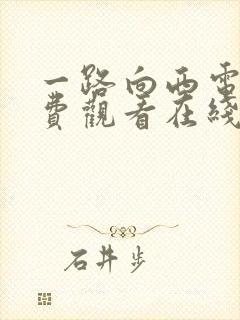 一路向西電
費觀看在綫
石井步